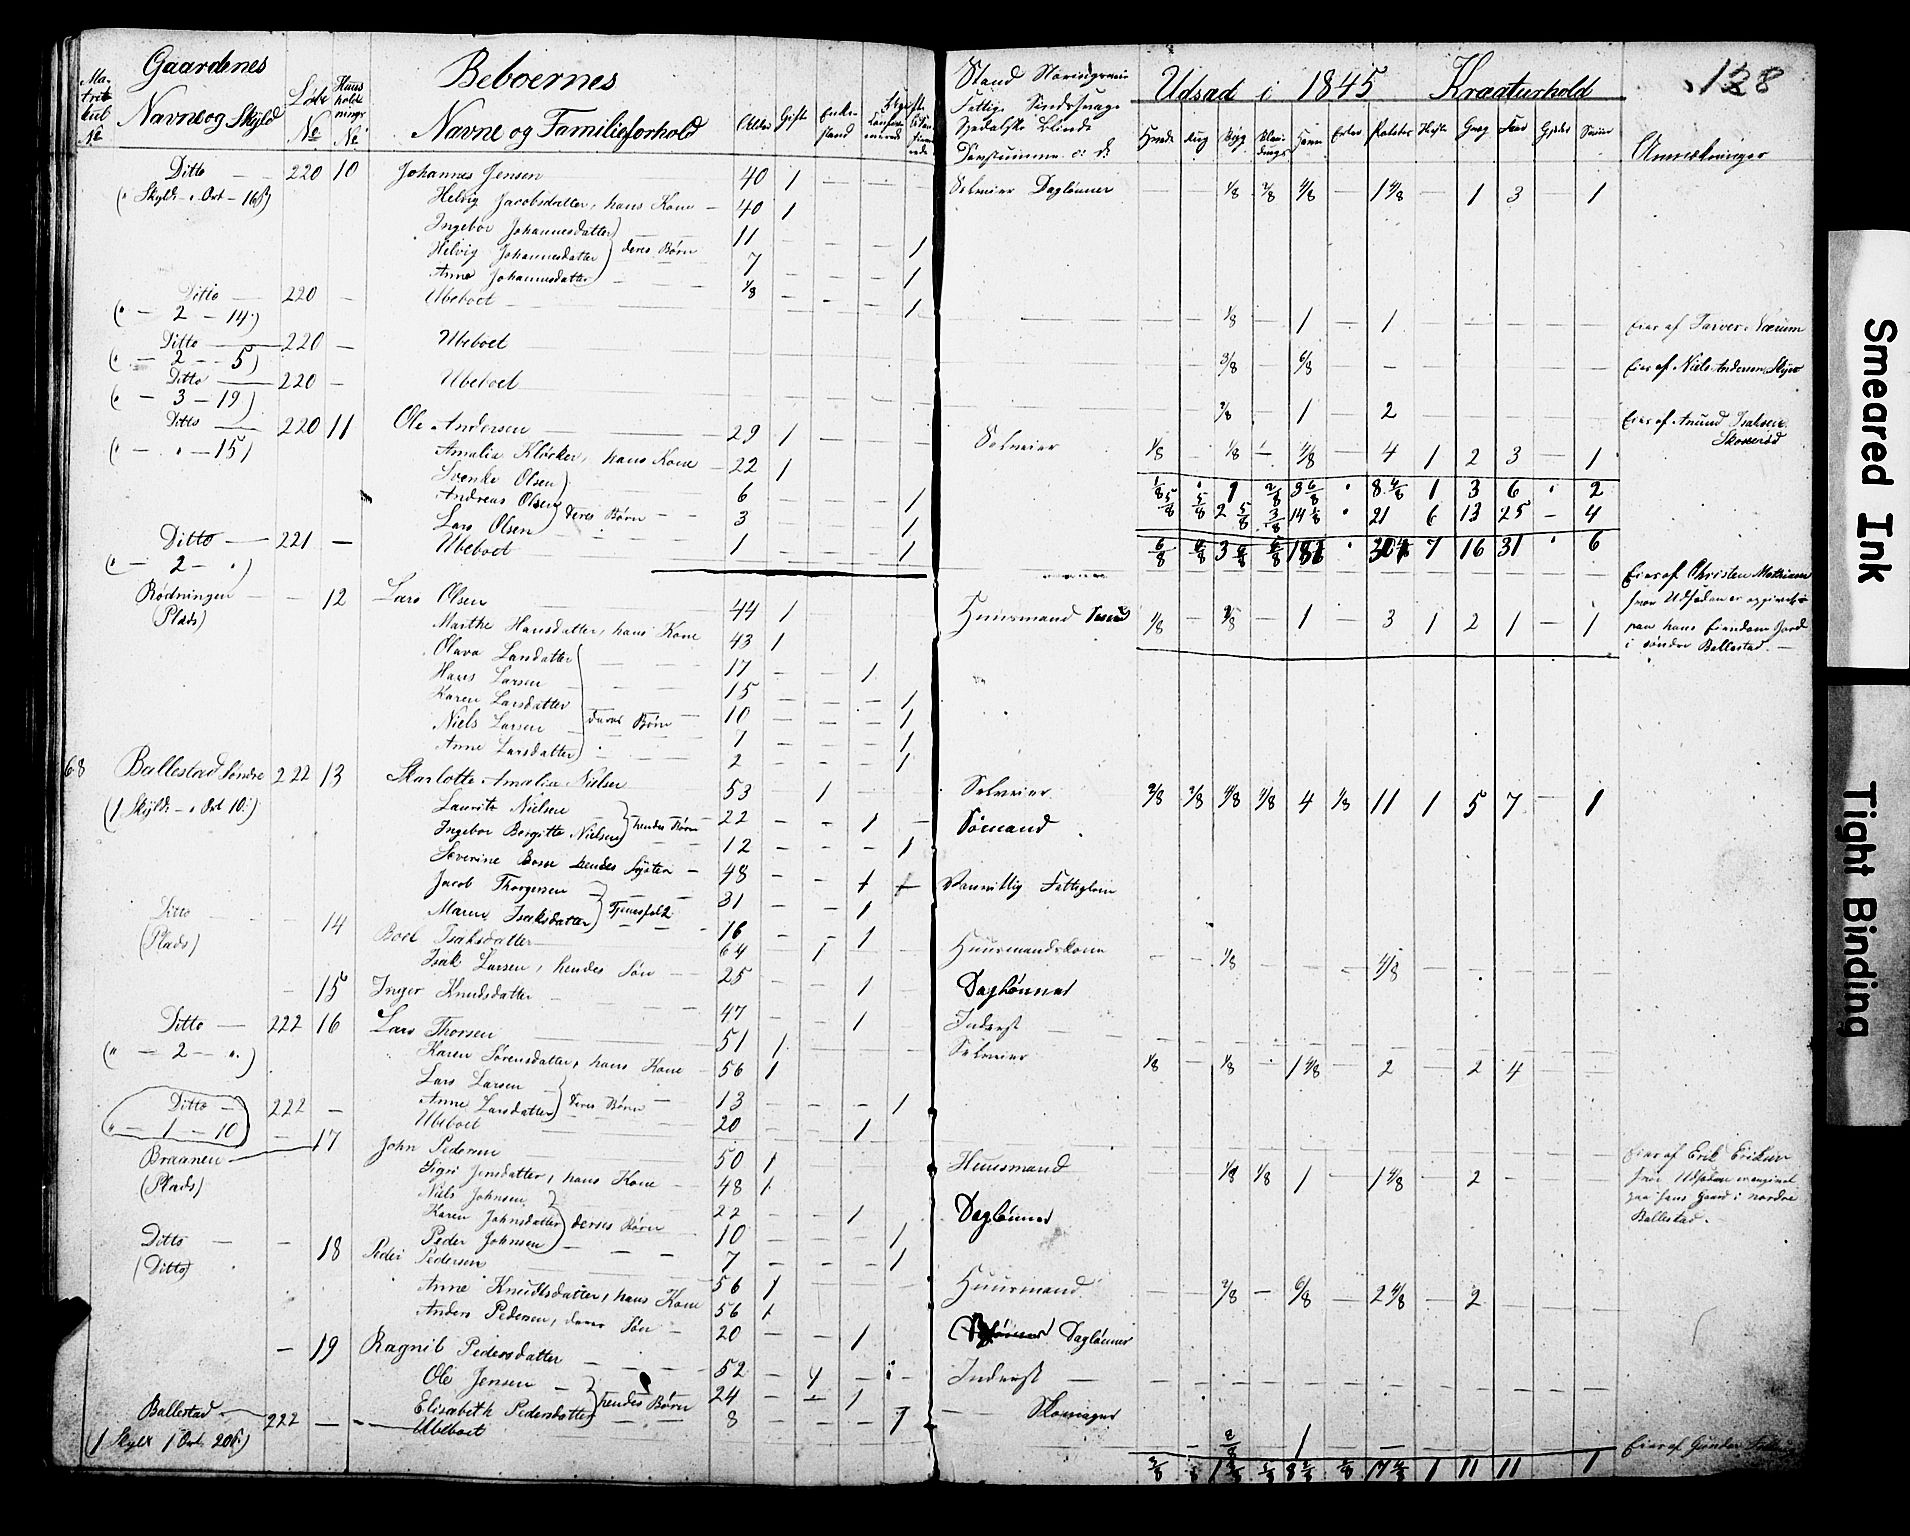 Gaardenes Beboernes Udsæd i 1845 Kreaturhold 128
Ma-trikul № Navne og Skyld Løbe № Huusholdnings № Navne og Familieforhold Alder Gifte Enkestand Ugifte
Hvede Rug Byg Havre Erter Poteter Heste Qvæg Faar Gjeder Sviin Anmærkninger
Ditto — 220 10 Johannes Jensen 40 1 — — Selveier Dagløner — — 1/8 2/8 4/8 — 1 4/8 — 1 3 — 1
(" Skyld " Ort — 16 ß) Helvig Jacobsdatter, hans Kone — 40 1
Ingebor Johannesdatter 11 — — — 1
Helvig Johannesdatter } deres Børn 7 — — — 1
Anne Johannesdatter 1/8 — — — 1
Ditto — 220 — Ubeboet — — 1/8 — 1 — 1 — — — — — Eies af
(" — 2 — 14)
Ditto — 220 — Ubeboet 3/8 6/8 — — Eies af Niels Andersen
(" — 2 — 5)
Ditto — 220 — Ubeboet 3/8 — 1 — 2 Eies af Amund Isaksen
(" — 3 — 19)
Ditto 220 11 Ole Andersen 29 1 — — Selveier 1/8 — 1/8 — 4/8 — 4 1 2 3 — 1
(" — " — 15) Amalia Klöcker, hans Kone — 22 1
Svenke Olsen 6 — — — 1
Andreas Olsen } deres Børn — 3 — — — 1
Lars Olsen 1 — — — 1
1/8 " 1 2/8 3 6/8 " 8 4/8 1 3 6 " 2
5/8 5/8 2 5/8 3/8 14 " 21 6 13 25 — 4
7 16 31 " 6
Ditto — 221 — Ubeboet Eies af Christen
(" — 2 — ") hvor Udsæden er opgivet
paa hans Eiendoms Jord
i søndre Ballestad. —
Rødningen — — 12 Lars Olsen 44 1 Huusmand 1/8 — 3/8 — 1 — 3 1 2 1 — 1
(Plads) Marthe Hansdatter, hans Kone 43 1
Olava Larsdatter 17 — — 1
Hans Larsen 15 — — — 1
Karen Larsdatter } deres Børn 10 — — — 1
Niels Larsen 7 — — — 1
Anne Larsdatter 2 — — — 1
68 Ballestad Søndre 222 13 Skarlotte Amalia Nielsen 53 — 1 Selveier 2/8 2/8 4/8 2/8 4 1/8 11 1 5 7 — 1
(1 Skyld — " Ort 10) Lauritz Nielsen 22 — — 1 — Sømand
Ingebor Birgitte Nielsen } hendes Børn 12 — — — 1
Severine hendes Syster — 48 — — 1 Vanvittig Fattiglem
Jacob Thorgersen 31 — — 1
Maren Isaksdatter } Tjenestfolk 16 — — 1
Ditto — — 14 Boel Isaksdatter 64 — 1 — Huusmandskone — — 1/8 — — — 4/8 — — —
(Plads) Isak Larsen, hendes Søn — 25 — — 1 Dagløner
— 15 Inger Knudsdatter 47 — — 1 Inderst —
Ditto — 222 16 Lars Thorsen 51 1 Selveier 1/8 — 1/8 — 1 4/8 — 2 — 2 4
(" — 2 — ".) Karen Sørensdatter, hans Kone 56 1
Lars Larsen 13 — — — 1
Anne Larsdatter } deres Børn 20 — — 1
Ditto — 222 — Ubeboet Eies af Erik Eriksen
(" — 1 — 10) hvor Udsæden er angivet
paa hans Gaard i nordre
Ballestad.
Braanen — 17 John Pedersen 50 1 Huusmand 1/8 1/8 1 — 1 4/8 — 2
(Plads) Sigri Jensdatter, hans Kone 48 1
Niels Johnsen 22 — — 1 Dagløner
Karen Johnsdatter } deres Børn 10 — — — 1
Peder Johnsen 7 — — — 1
Ditto — — 18 Peder Pedersen 56 1 Huusmand — — 2/8 — 6/8 — 2 4/8 — 2
(Ditto) Anne Knudtsdatter, hans Kone 56 1
Anders Pedersen, deres Søn — 20 — — 1 Dagløner
— 19 Ragnil Pedersdatter 52 — 1 — Inderst —
Ole Jensen 24 — — 1 —
Elisabeth Pedersdatter } hendes Børn 8 — — — 1
Ballestad — 222 — Ubeboet 2/8 1 Eies af Gunder
(1 Skyld 1 Ort 20 ß) 11 11 1
Smeared Ink
Tight Binding